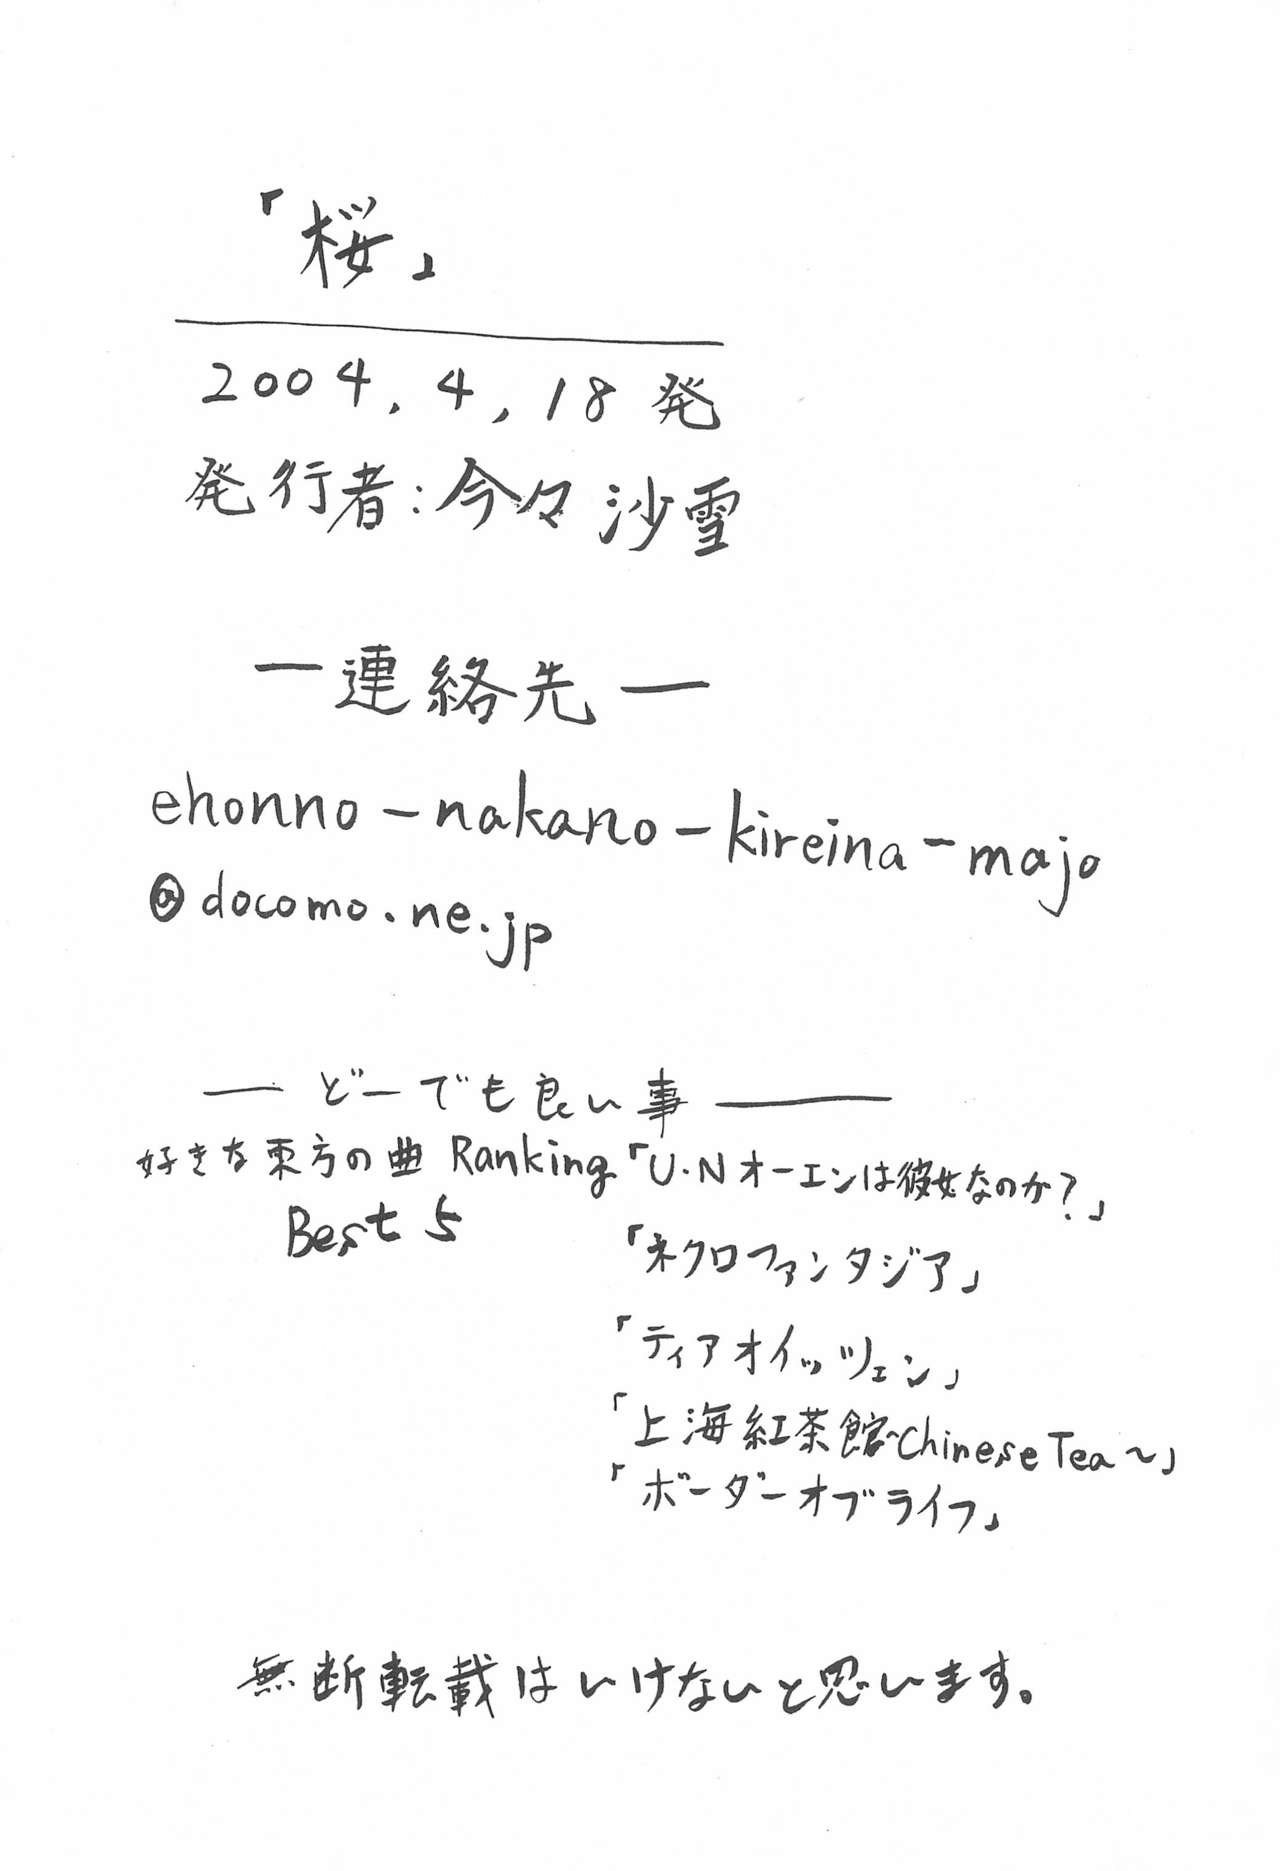 「桜」
2004.4,18 発
発行者:今々沙雪
ー連絡先ー
ehonno-nakano-kireina-majo
@docomo.ne.jp
── どーでも良い事 ──
好きな東方の曲 Ranking「U.Nオーエンは彼女なのか?」
Best 5
「ネクロファンタジア」
「ティアオイッツェン」
「上海紅茶館~Chinese Tea~」
「ボーダーオブライフ」
無断転載はいけないと思います。